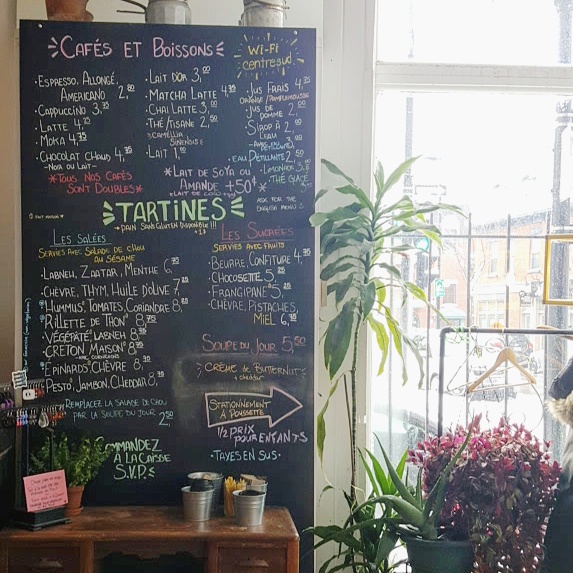 CAFÉS ET BOISSONS
WI-FI
centresud
·ESPRESSO, ALLONGÉ,
AMERICANO 2,80
·CAPPUCCINO 3,75
·LATTE 4,25
·MOKA 4,75
·CHOCOLAT CHAUD 4,75
-NOIR OU LAIT-
*TOUS NOS CAFÉS
SONT DOUBLES*
·LAIT D'OR 3,00
·MATCHA LATTE 4,25
·CHAI LATTE 3,00
·THÉ/TISANE 2,50
*CAMELLIA
SINENSIS*
·LAIT 1,00
*LAIT DE SOYA OU
AMANDE +50¢
·JUS FRAIS 4,75
ORANGE/PAMPLEMOUSSE
·JUS DE
POMME 2,00
·SIROP À
L'EAU
·EAU PÉTILLANTE 2,50
·LIMONADE
·THÉ GLACÉ
ASK FOR THE
ENGLISH MENU
FAIT MAISON
TARTINES
*PAIN SANS GLUTEN DISPONIBLE!!!
LES SALÉES
SERVIES AVEC SALADE DE CHOU
AU SÉSAME
·LABNEH, ZAATAR, MENTHE 6,75
·CHÈVRE, THYM, HUILE D'OLIVE 7,
·HUMMUS, TOMATES, CORIANDRE 8,
·RILLETTE DE THON 8,
·VÉGÉPÂTÉ, LABNEH 8,
·CRETON MAISON 8,
·ÉPINARDS, CHÈVRE 8,
·PESTO, JAMBON, CHEDDAR 8,
REMPLACEZ LA SALADE DE CHOU
PAR LA SOUPE DU JOUR 2,50
LES SUCRÉES
SERVIES AVEC FRUITS
·BEURRE, CONFITURE 4,75
·CHOCOSETTE 5,25
·FRANGIPANE 5,25
·CHÈVRE, PISTACHES,
MIEL 6,
SOUPE DU JOUR 5,50
CRÈME DE BUTTERNUT
+ cheddar
STATIONNEMENT
À POUSSETTE
1/2 PRIX
POUR ENFANTS
·TAXES EN SUS·
COMMANDEZ
À LA CAISSE
S.V.P.